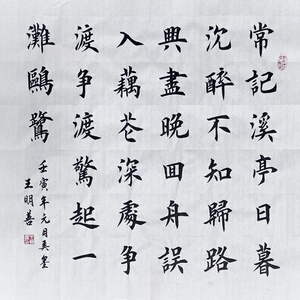 常記溪亭日暮
沈醉不知歸路
興盡晚囬舟誤
入藕花深處爭
渡爭渡驚起一
灘鷗鷺
壬寅年元月
王明善